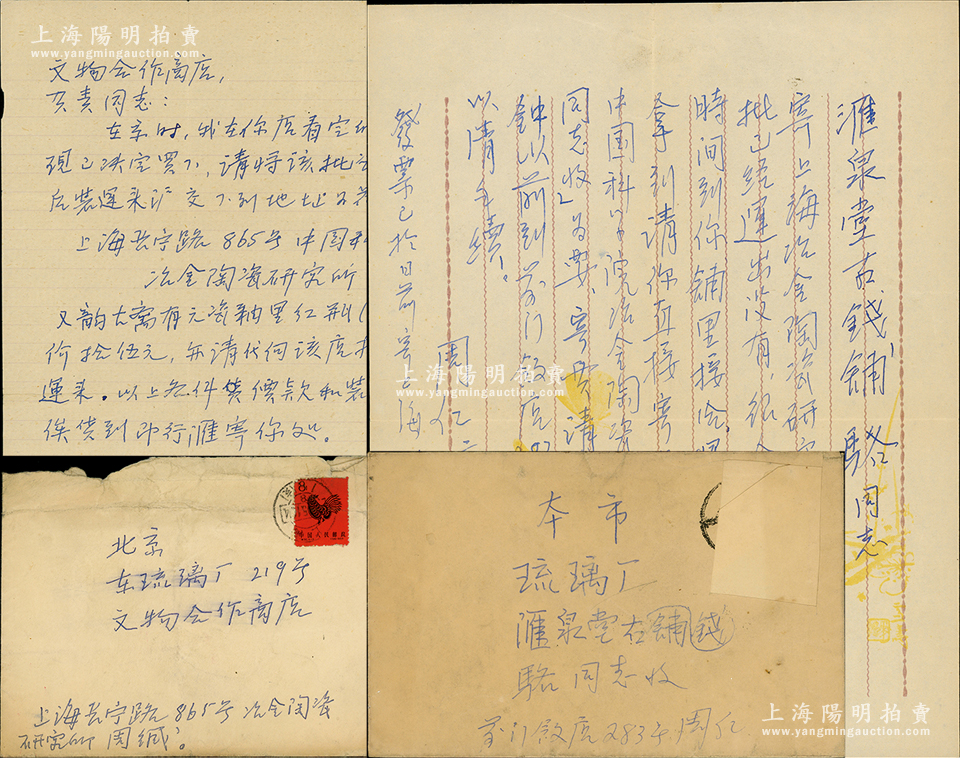 上海陽明拍賣
www.yangmingauction.com
文物合作商店,
负责同志:
在京时,我在你店看定
现已决定買下,请将该批
后装運来沪交下列地址
上海长宁路865号中国
冶金陶瓷研究所
又韵古斋有元瓷釉里红
价拾伍元,并请代向该店
運来。以上各件货價款和装
俟货到即行滙寄你处。
滙泉堂古錢鋪,駱同志
寄上海冶金陶瓷研
批已經運出没有,
時间到你鋪里接洽,
拿到請你直接寄
中国科学院冶金陶瓷
同志收,为要、寄费請
鈡以前到前门飯店
以清手續。
周仁
發票已於日前寄上海
上海陽明拍賣
www.yangmingauction.com
北京
东琉璃厂 219号
文物合作商店
上海长宁路865号冶金陶瓷
研究所 周缄。
中国人民邮政
8
本市
琉璃厂
滙泉堂古鋪錢
駱同志收
前门飯店283号周仁
上海陽明拍賣
www.yangmingauction.com